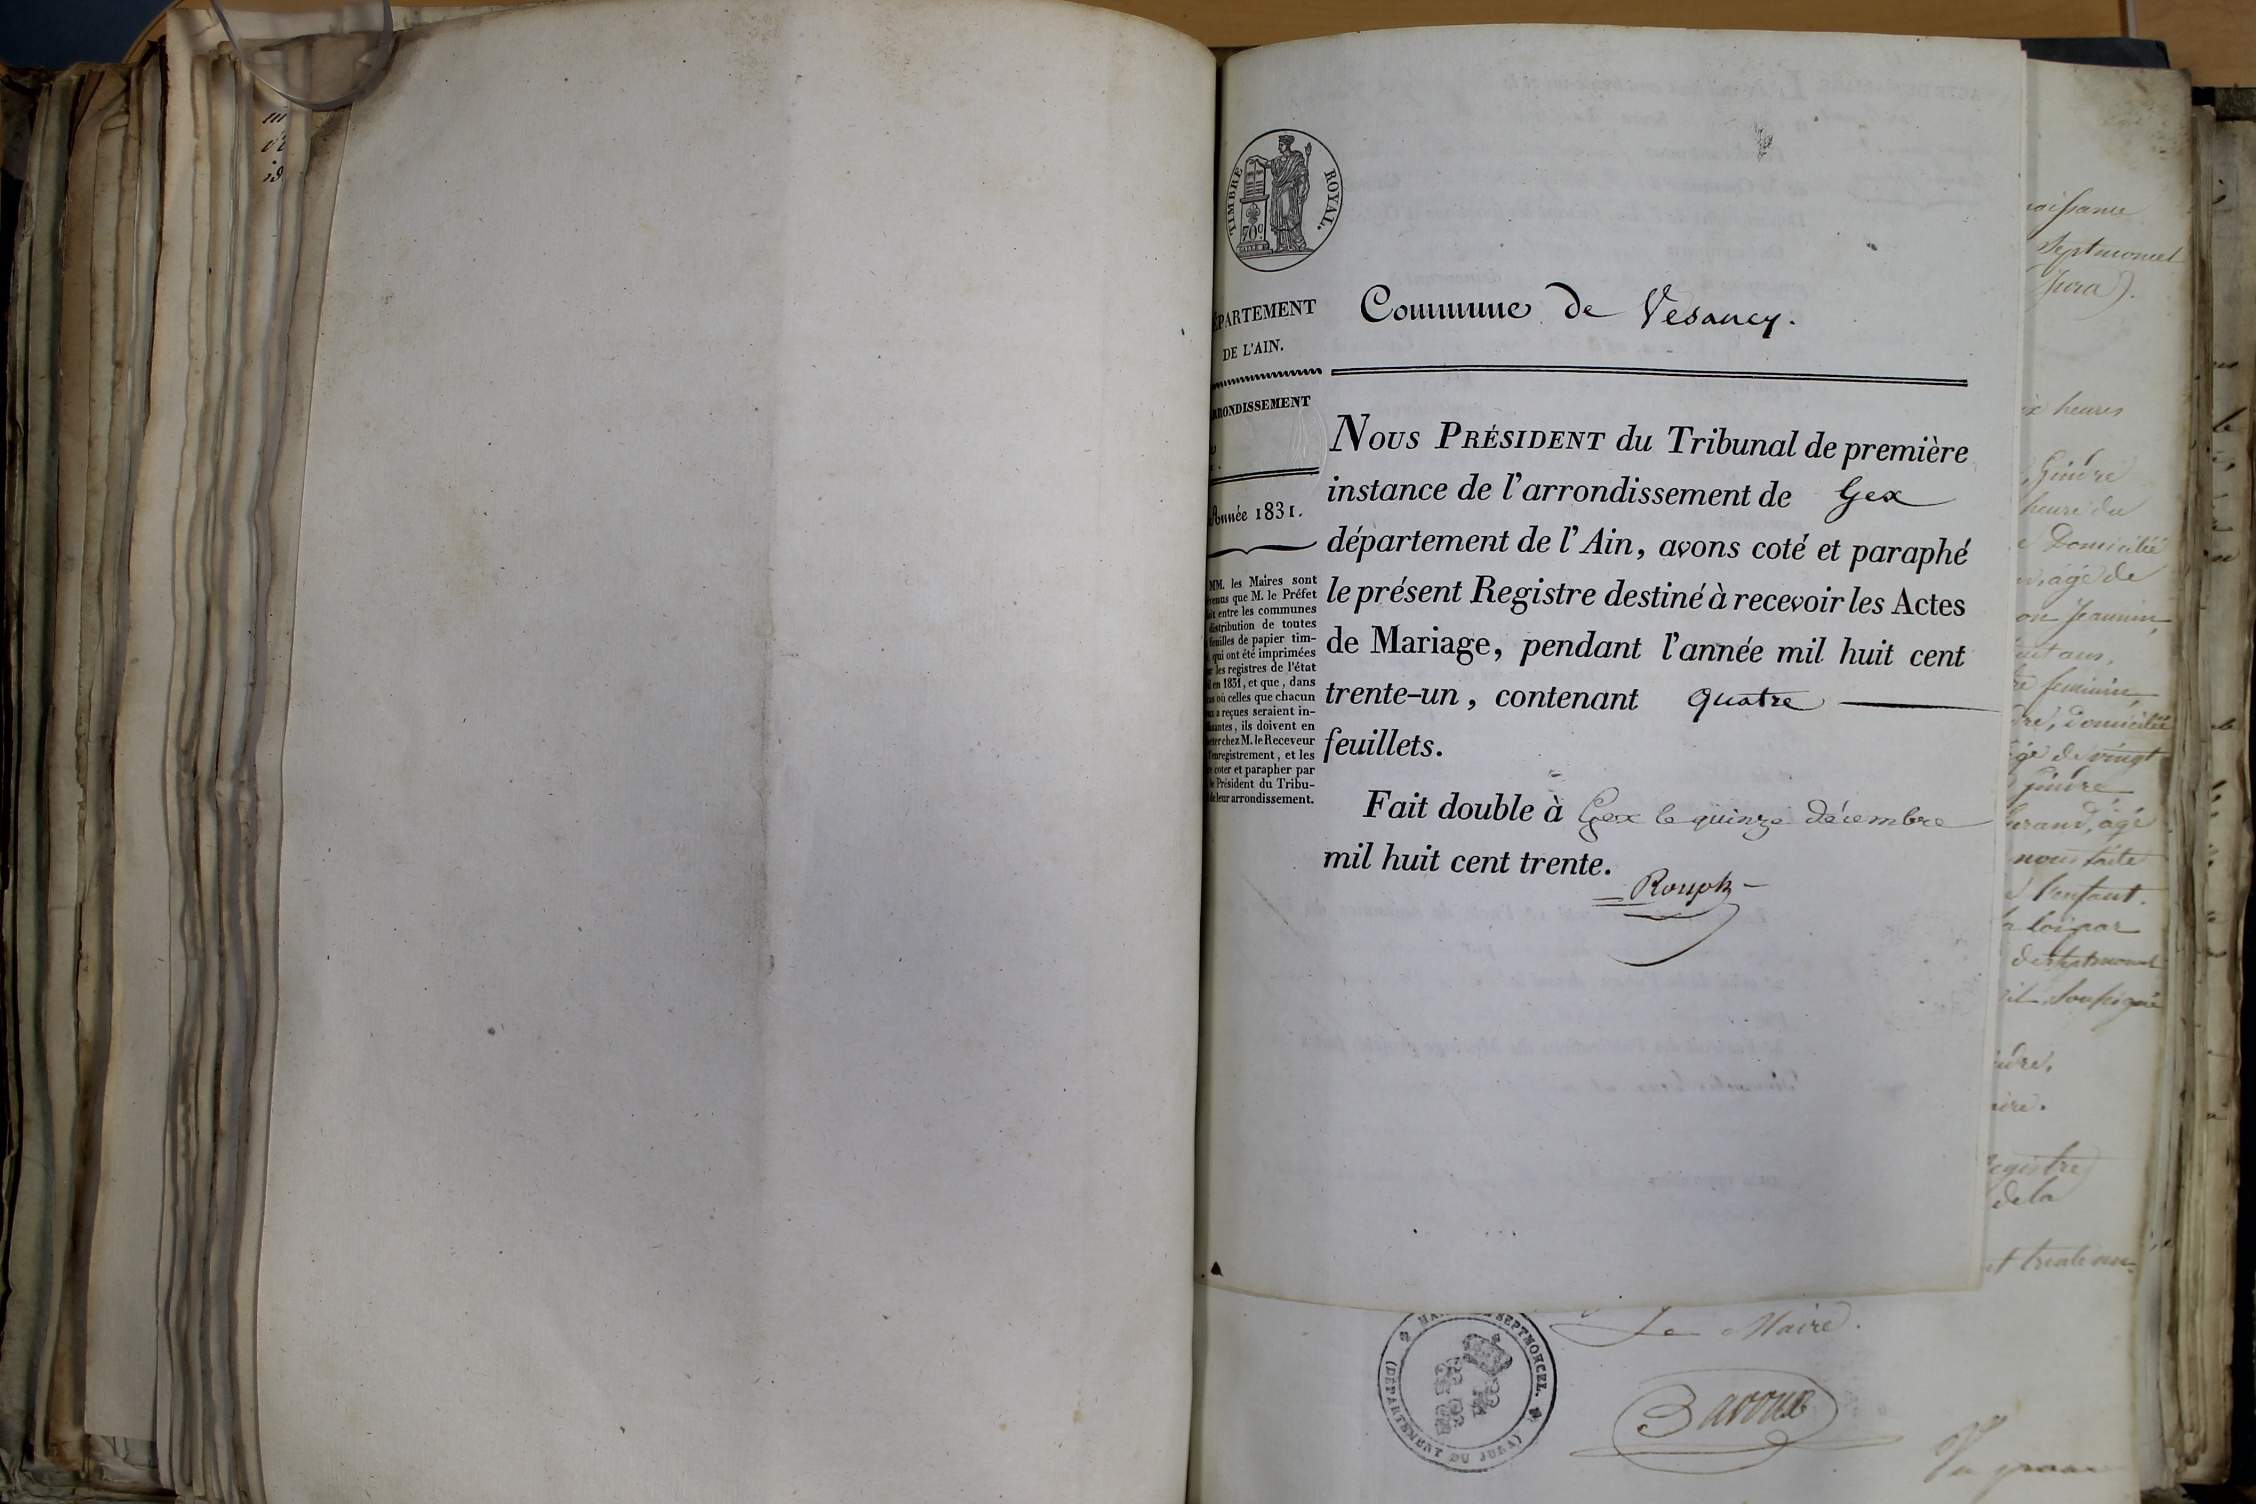 TIMBRE ROYAL.
70c
ÉPARTEMENT
DE L'AIN.
Commune de Vesancy.
RRONDISSEMENT
Année 1831.
MM. les Maires sont
venus que M. le Préfet
entre les communes
distribution de toutes
feuilles de papier tim-
qui ont été imprimées
les registres de l'état
en 1831, et que, dans
où celles que chacun
a reçues seraient in-
santes, ils doivent en
eter chez M. le Receveur
l'enregistrement, et les
coter et parapher par
le Président du Tribu-
de leur arrondissement.
NOUS PRÉSIDENT du Tribunal de première
instance de l'arrondissement de Gex
département de l'Ain, avons coté et paraphé
le présent Registre destiné à recevoir les Actes
de Mariage, pendant l'année mil huit cent
trente-un, contenant quatre
feuillets.
Fait double à Gex le quinze décembre
mil huit cent trente.
Rouph
aissance
Septmoncel
Jura).
ix heures
Gindre
heure du
Domicilié
âgé de
on Jeannin,
ans,
feminin,
dre, domicilié
gé de vingt
gindre
urand, âgé
nous faite
l'enfant.
la loi par
de Septmoncel
il, soussigné
ndre,
aire.
egistre
de la
et trente un.
Le Maire.
SEPTMONCEL.
(DÉPARTEMENT DU JURA)
Bavoux
Vu pour